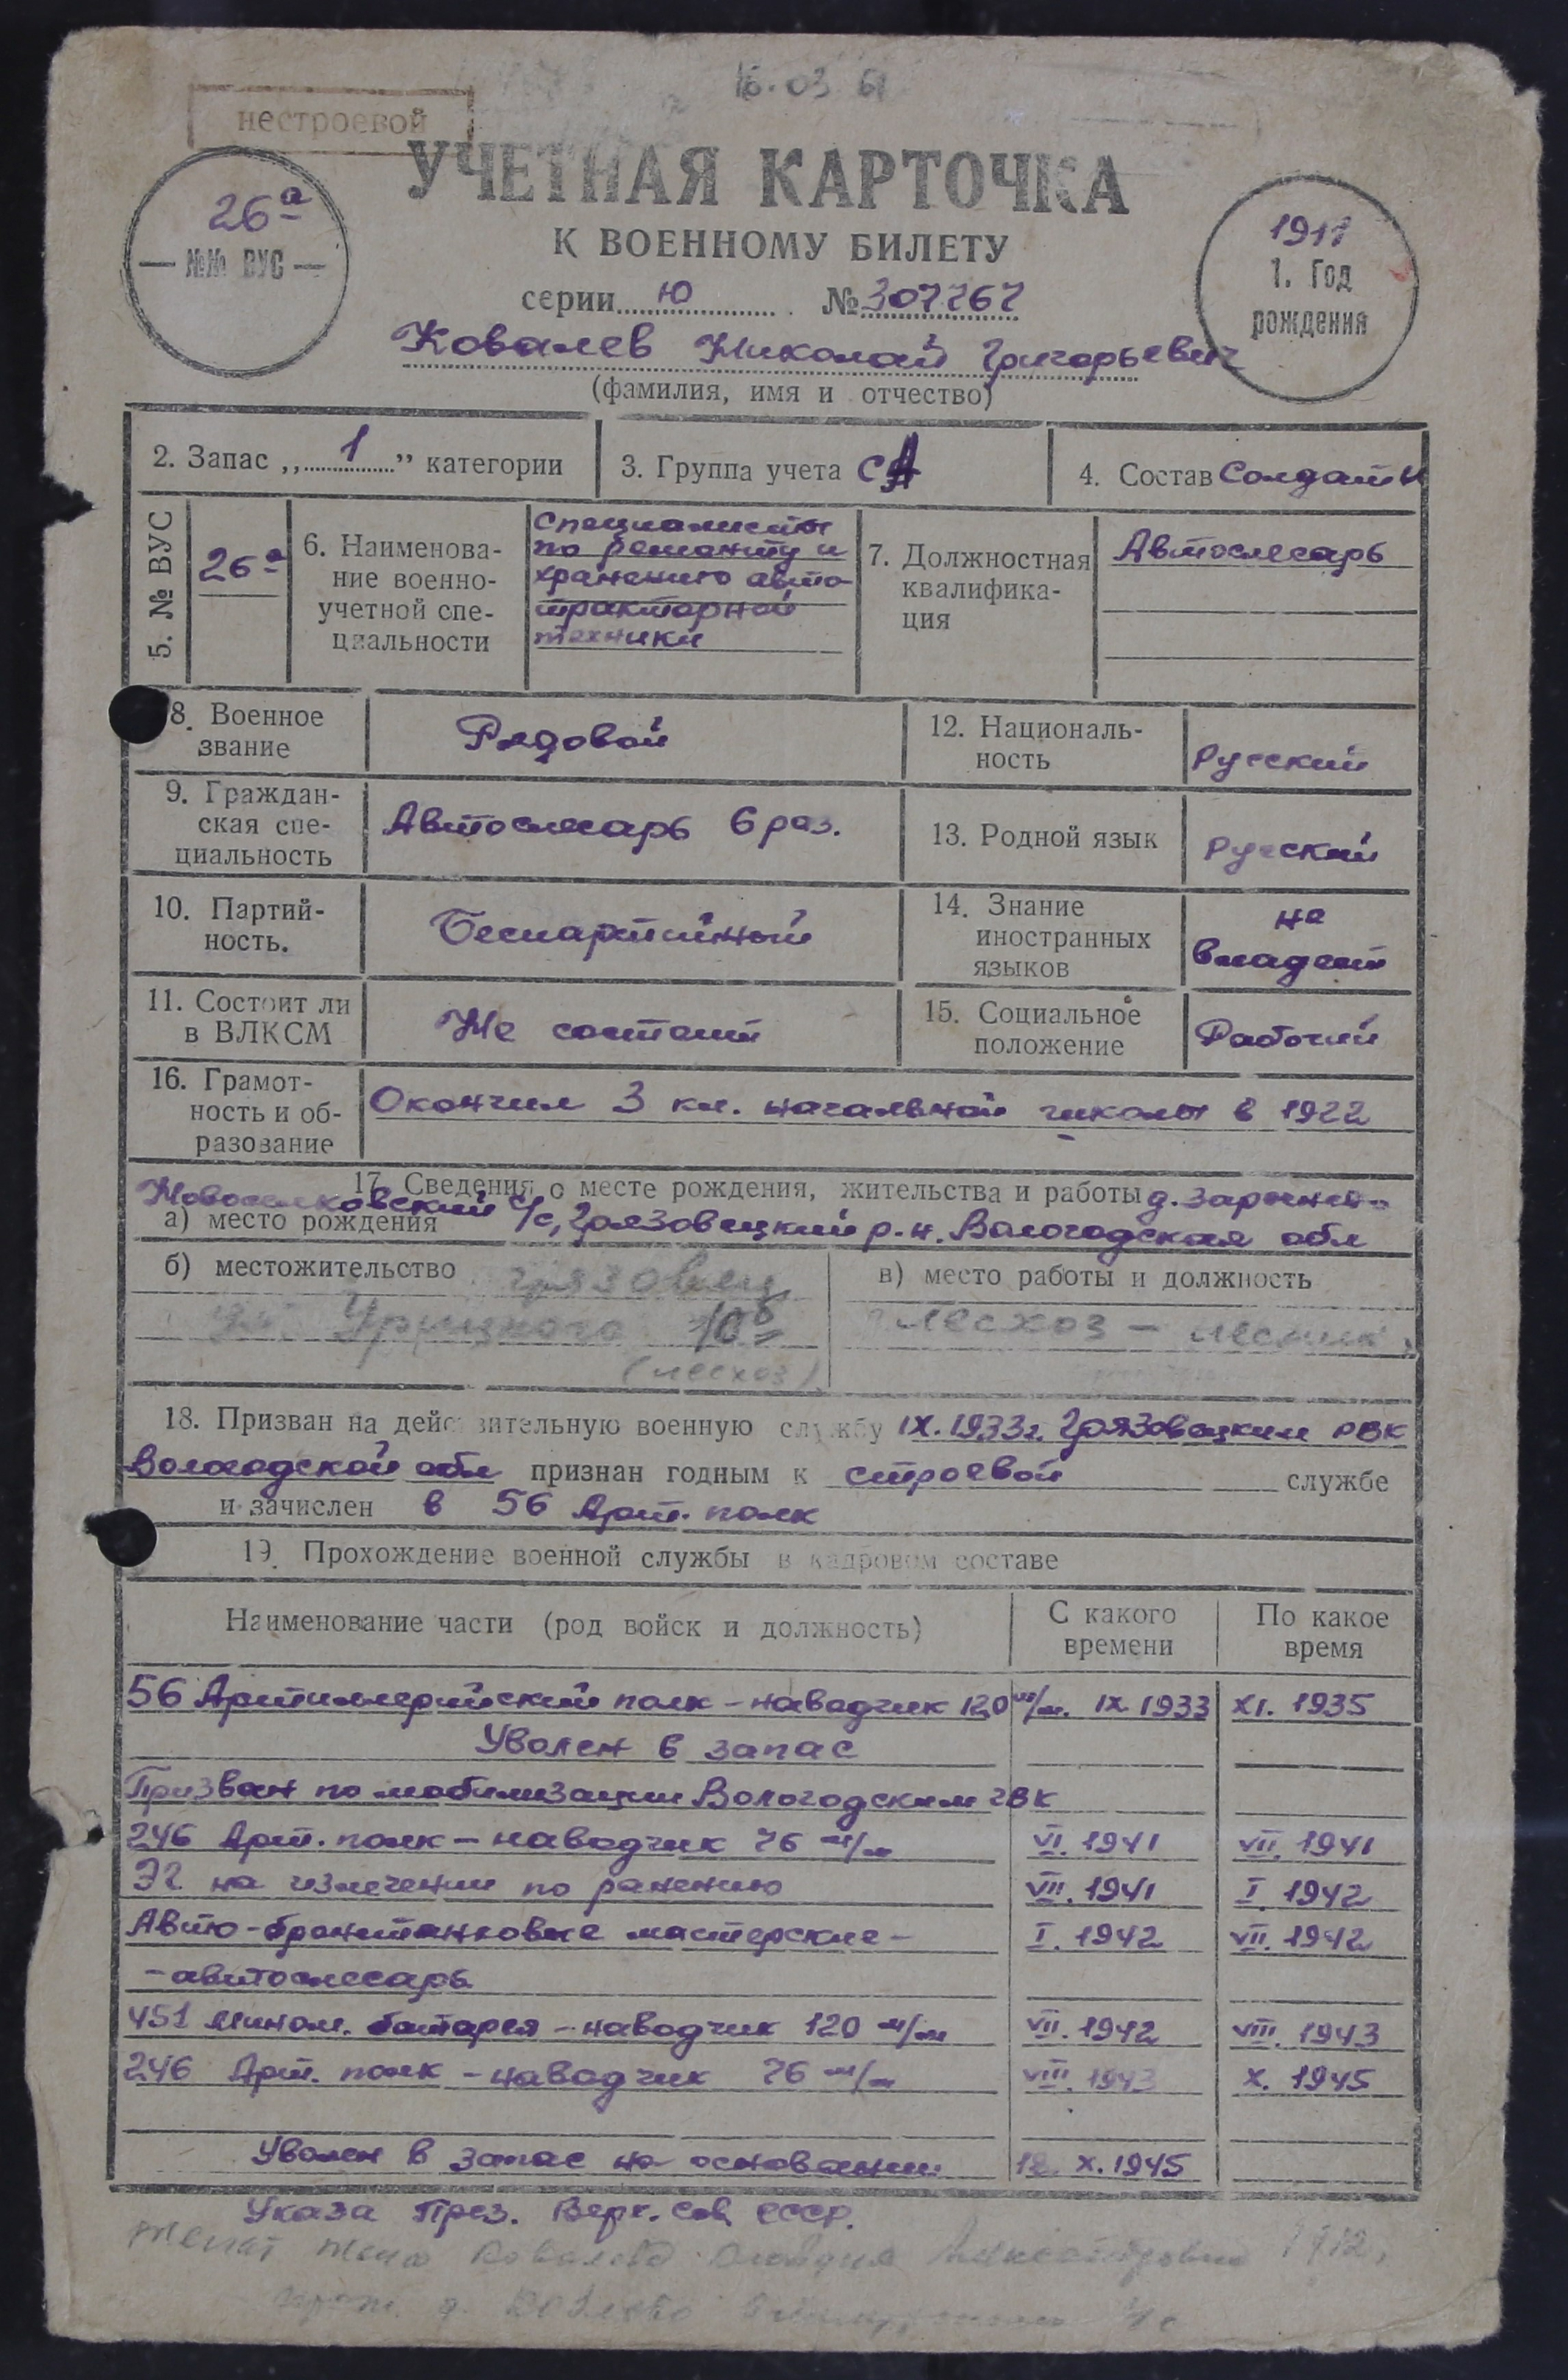 16.03 61
нестроевой
УЧЕТНАЯ КАРТОЧКА
К ВОЕННОМУ БИЛЕТУ
26а
№№ ВУС
1911
1. Год
рождения
серии Ю № 307767
Ковалев Николай Григорьевич
(фамилия, имя и отчество)
2. Запас „1” категории
3. Группа учета СА
4. Состав Солдаты
5. № ВУС
26а
6. Наименова-
ние военно-
учетной спе-
циальности
Специалисты
по ремонту и
хранению авто-
тракторной
техники
7. Должностная
квалифика-
ция
Автослесарь
8. Военное
звание
Рядовой
12. Националь-
ность
Русский
9. Граждан-
ская спе-
циальность
Автослесарь 6 раз.
13. Родной язык
Русский
10. Партий-
ность.
Беспартийный
14. Знание
иностранных
языков
не
владеет
11. Состоит ли
в ВЛКСМ
Не состоит
15. Социальное
положение
Рабочий
16. Грамот-
ность и об-
разование
Окончил 3 кл. начальной школы в 1922
17. Сведения о месте рождения, жительства и работы д.
Новоселковский с/с, Грязовецкий р-н. Вологодская обл
а) место рождения
б) местожительство Грязовец
ул. Урицкого 10б
(лесхоз)
в) место работы и должность
Лесхоз - лесник
18. Призван на действительную военную службу IX.1933г. Грязовецким РВК
Вологодской обл признан годным к строевой службе
и зачислен в 56 Арт. полк
19. Прохождение военной службы в кадровом составе
Наименование части (род войск и должность)
С какого
времени
По какое
время
56 Артиллерийский полк - наводчик 120 м/м. IX 1933 XI. 1935
Уволен в запас
Призван по мобилизации Вологодским ГВК
246 Арт. полк - наводчик 76 м/м VI. 1941 VII. 1941
ЭГ на излечении по ранению VII. 1941 I. 1942
Авто-бронетанковые мастерские - I. 1942 VII. 1942
- автослесарь
451 Мином. батарея - наводчик 120 м/м VII. 1942 VIII. 1943
246 Арт. полк - наводчик 76 м/м VIII. 1943 X. 1945
Уволен в запас на основании X. 1945
Указа През. Верх. Сов. СССР.
Женат жена Ковалева Клавдия Александровна 1912,